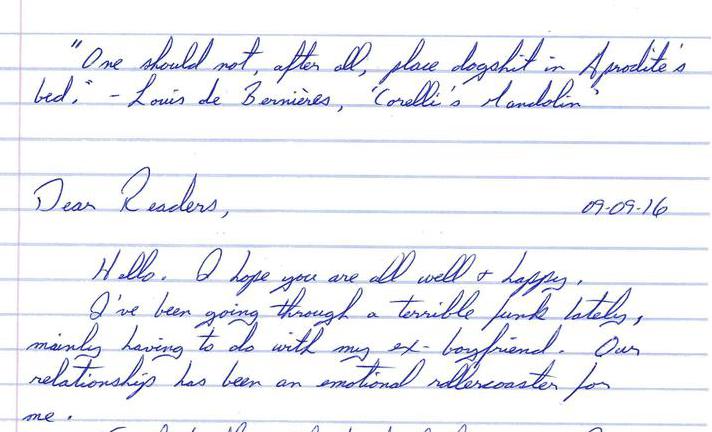 "One should not, after all, place dogshit in Aprodite's
bed." - Louis de Bernières, 'Corelli's Mandolin'
Dear Readers,
09-09-16
Hello. I hope you are all well + happy.
I've been going through a terrible funk lately,
mainly having to do with my ex-boyfriend. Our
relationship has been an emotional rollercoaster for
me.